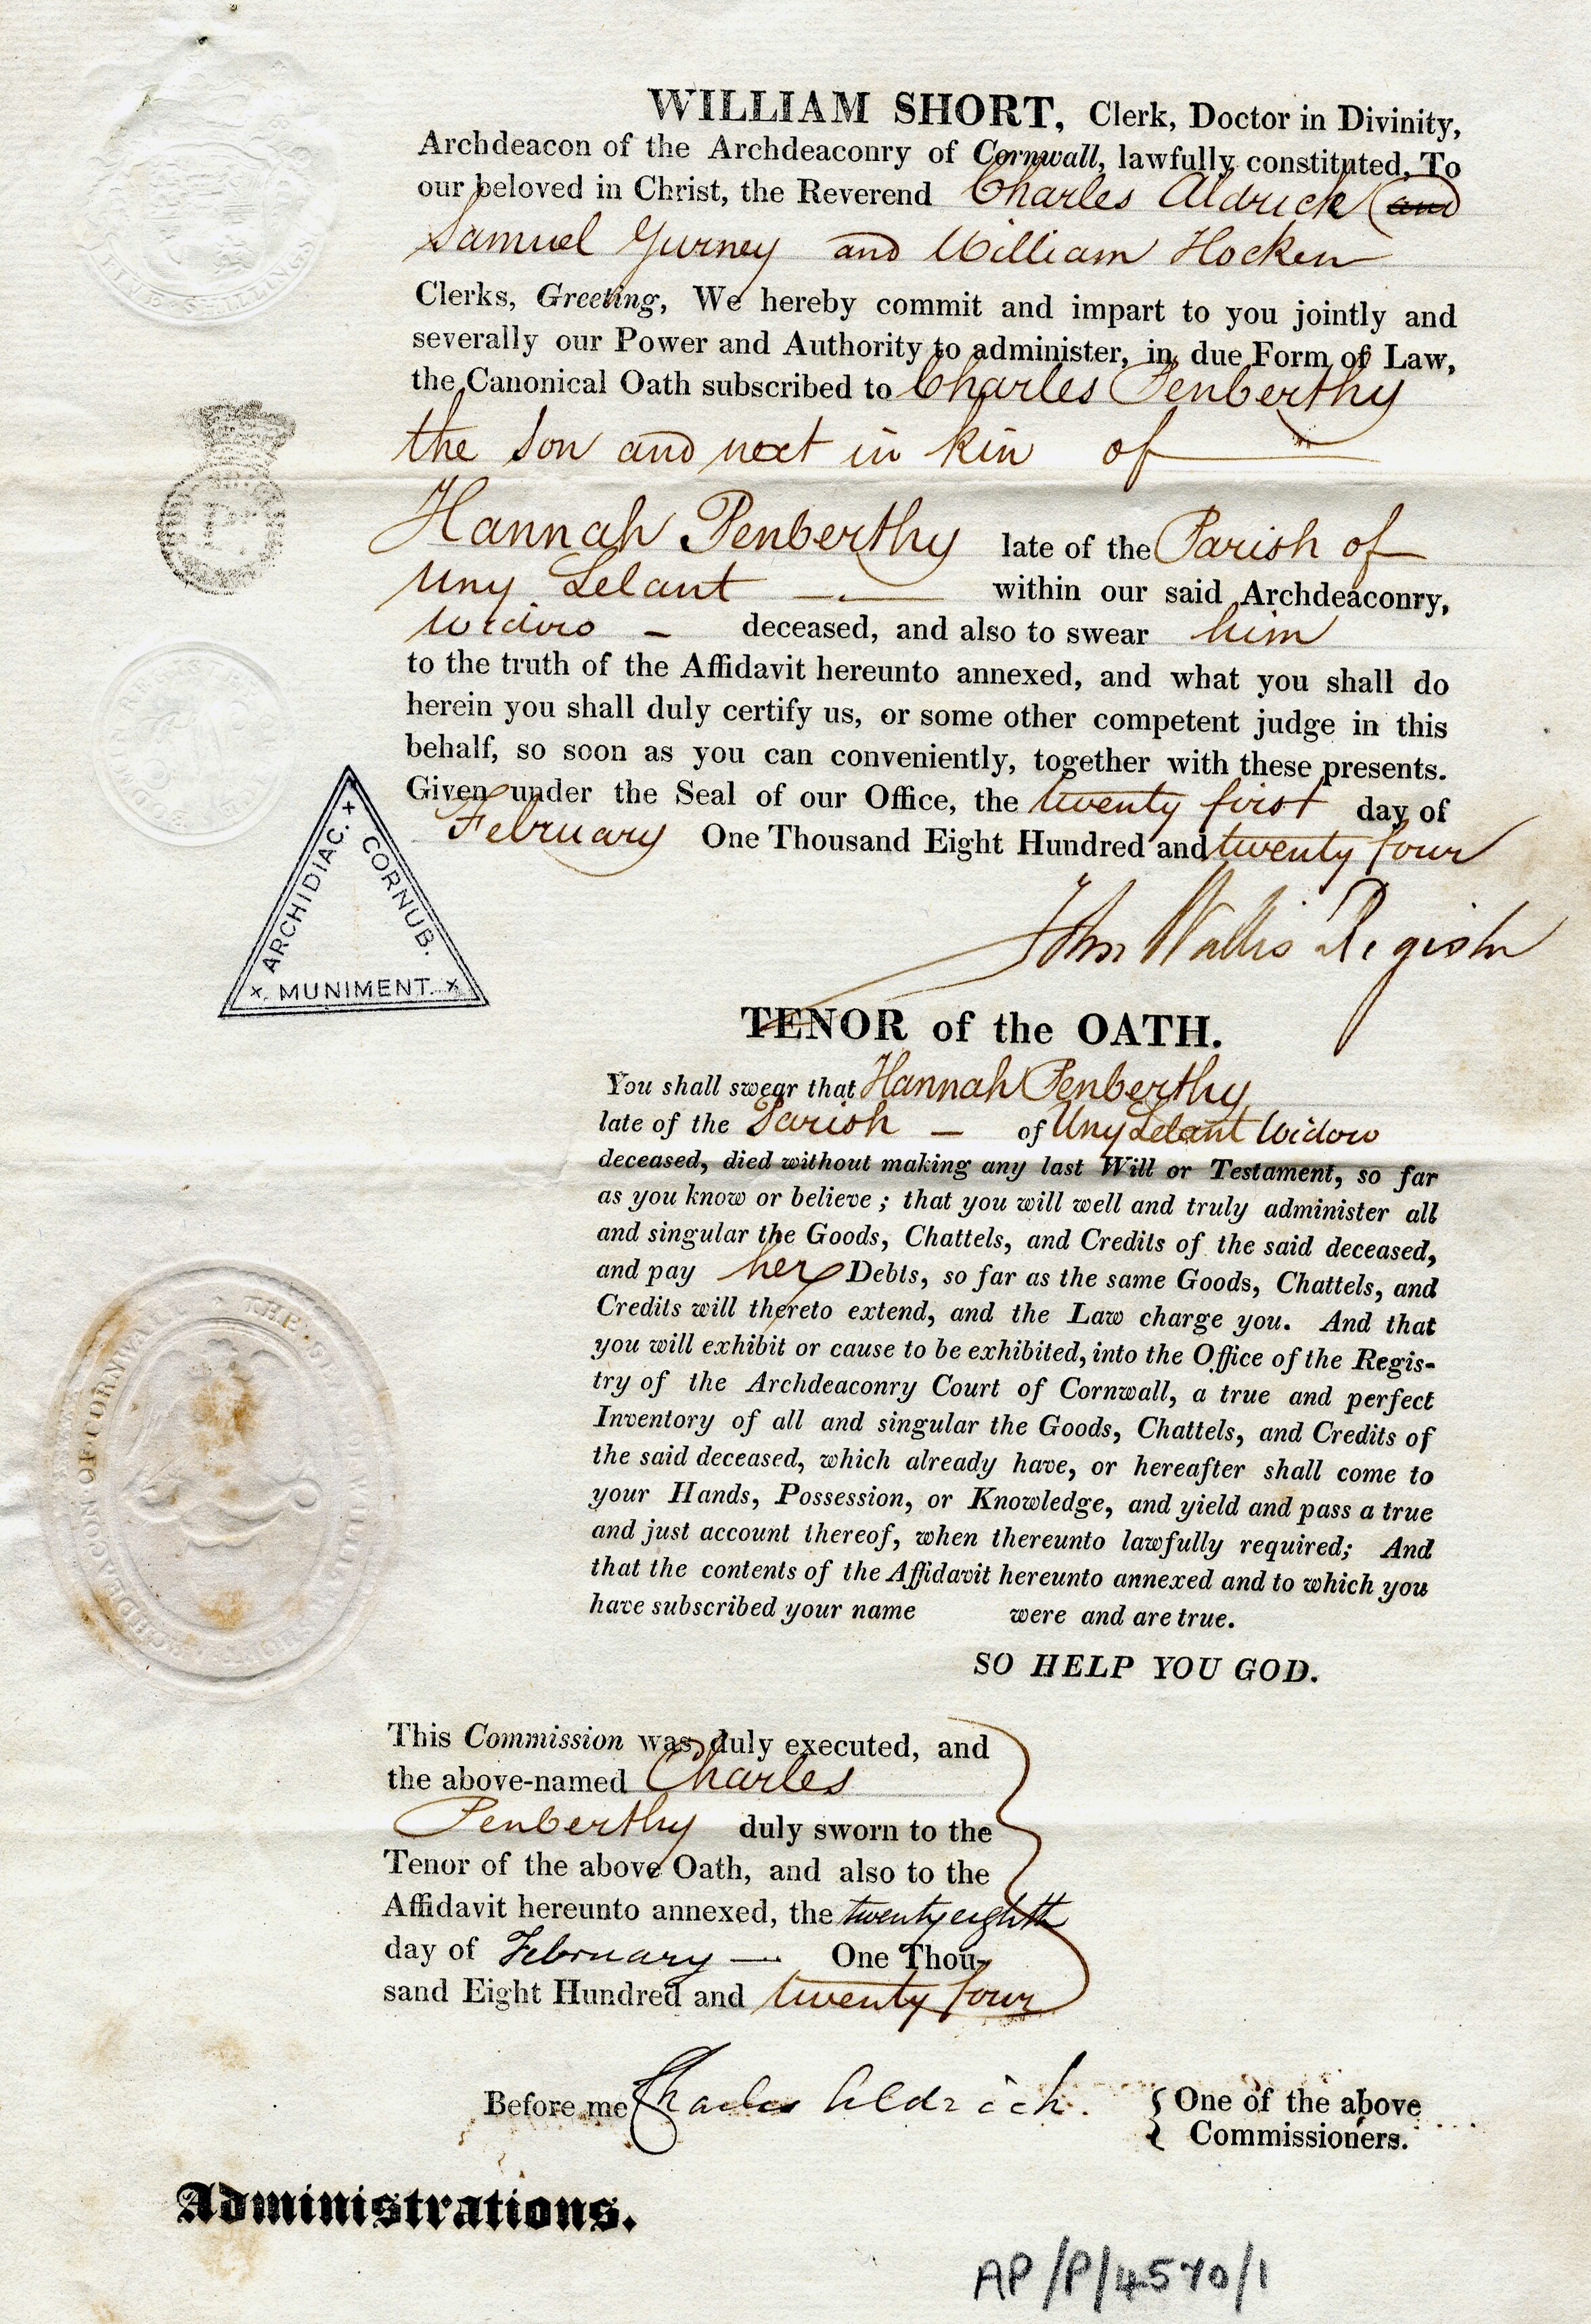 WILLIAM SHORT, Clerk, Doctor in Divinity,
Archdeacon of the Archdeaconry of Cornwall, lawfully constituted, To
our beloved in Christ, the Reverend Charles Aldrick and
Samuel Gurney and William Hocken
Clerks, Greeting, We hereby commit and impart to you jointly and
severally our Power and Authority to administer, in due Form of Law,
the Canonical Oath subscribed to Charles Penberthy
the Son and next in kin of
Hannah Penberthy late of the Parish of
Uny Lelant within our said Archdeaconry,
Widow - deceased, and also to swear him
to the truth of the Affidavit hereunto annexed, and what you shall do
herein you shall duly certify us, or some other competent judge in this
behalf, so soon as you can conveniently, together with these presents.
Given under the Seal of our Office, the twenty first day of
February One Thousand Eight Hundred and twenty four
John Wallis Registr
ARCHIDIAC. CORNUB.
MUNIMENT.
TENOR of the OATH.
You shall swear that Hannah Penberthy
late of the Parish - of Uny Lelant Widow
deceased, died without making any last Will or Testament, so far
as you know or believe; that you will well and truly administer all
and singular the Goods, Chattels, and Credits of the said deceased,
and pay her Debts, so far as the same Goods, Chattels, and
Credits will thereto extend, and the Law charge you. And that
you will exhibit or cause to be exhibited, into the Office of the Regis-
try of the Archdeaconry Court of Cornwall, a true and perfect
Inventory of all and singular the Goods, Chattels, and Credits of
the said deceased, which already have, or hereafter shall come to
your Hands, Possession, or Knowledge, and yield and pass a true
and just account thereof, when thereunto lawfully required; And
that the contents of the Affidavit hereunto annexed and to which you
have subscribed your name were and are true.
SO HELP YOU GOD.
ARCHDEACON OF CORNWALL
This Commission was duly executed, and
the above-named Charles
Penberthy duly sworn to the
Tenor of the above Oath, and also to the
Affidavit hereunto annexed, the twenty eighth
day of February - One Thou-
sand Eight Hundred and twenty four
Before me Charles Aldrich. One of the above
Commissioners.
Administrations.
AP/P/4570/1